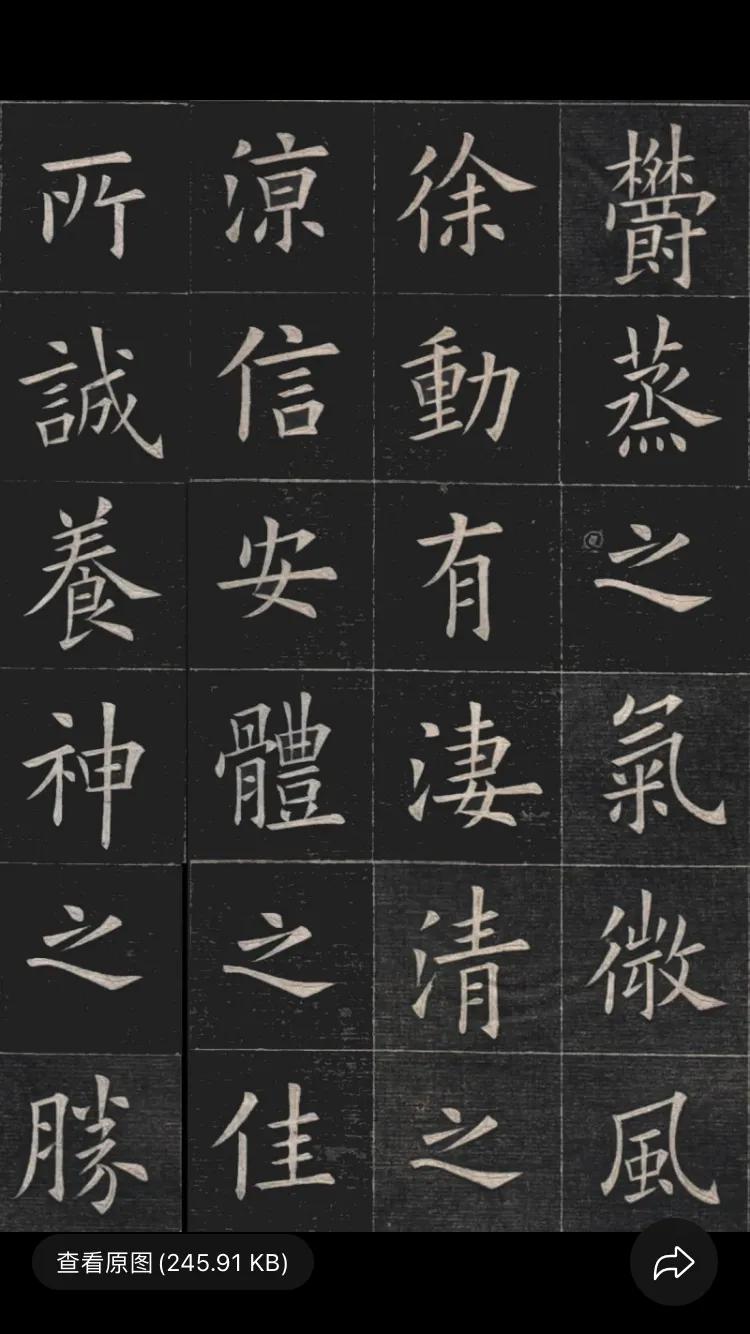 欝蒸之氣微風
徐動有淒清之
涼信安體之佳
所誠養神之勝
查看原图 (245.91 KB)